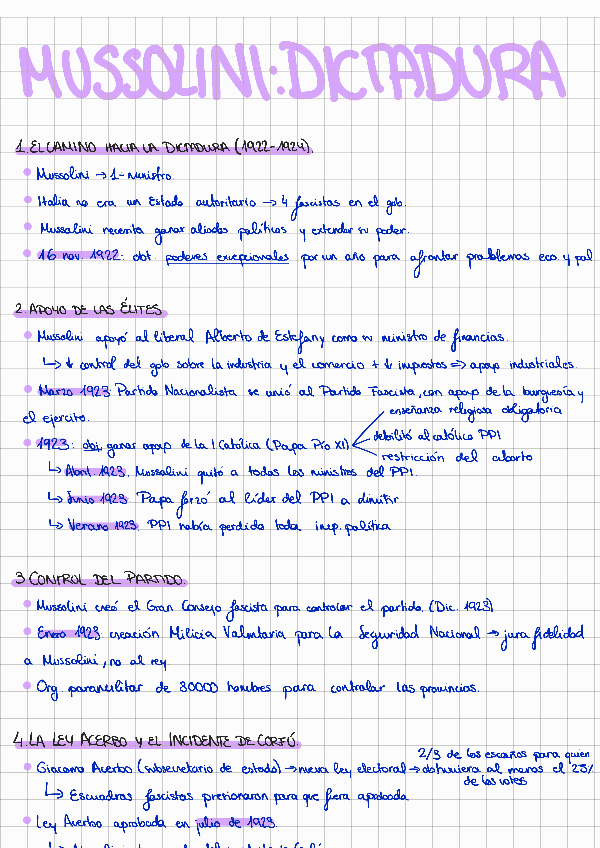 MUSSOLINI: DICTADURA
1. EL CAMINO HACIA LA DICTADURA (1922-1924).
Mussolini → 1-ministro.
Italia no era un Estado autoritario → 4 fascistas en el gob.
Mussolini necesita ganar aliados políticos y extender su poder.
16 nov. 1922: obt. poderes excepcionales por un año para afrontar problemas eco. y pol
2. APOYO DE LAS ÉLITES
Mussolini apoyó al liberal Alberto de Estefany como su ministro de financias.
↳ ↓ control del gob sobre la industria y el comercio + ↓ impuestos => apoyo industriales.
Marzo 1923 Partido Nacionalista se unió al Partido Fascista, con apoyo de la burguesía y
el ejercito.
enseñanza religiosa obligatoria
1923: obj. ganar apoyo de la I Católica (Papa Pío XI)
debilitó al católico PPI
restricción del aborto
↳ Abril 1923. Mussolini quitó a todos los ministros del PPI.
↳ Junio 1923 Papa forzó al líder del PPI a dimitir
↳ Verano 1923. PPI había perdido toda imp. política
3 CONTROL DEL PARTIDO.
Mussolini creó el Gran Consejo fascista para controlar el partido. (Dic. 1923)
Enero 1923 creación Milicia Voluntaria para la Seguridad Nacional → jura fidelidad
a Mussolini, no al rey
Org. paramilitar de 30000 hombres para controlar las provincias.
4. LA LEY ACERBO Y EL INCIDENTE DE CORFÚ.
2/3 de los escaños para quien
Giacomo Acerbo (subsecretario de estado) → nueva ley electoral → obtuviera al menos el 25%
de los votos
↳ Escuadras fascistas presionaron para que fuera aprobada
Ley Acerbo aprobada en julio de 1923.